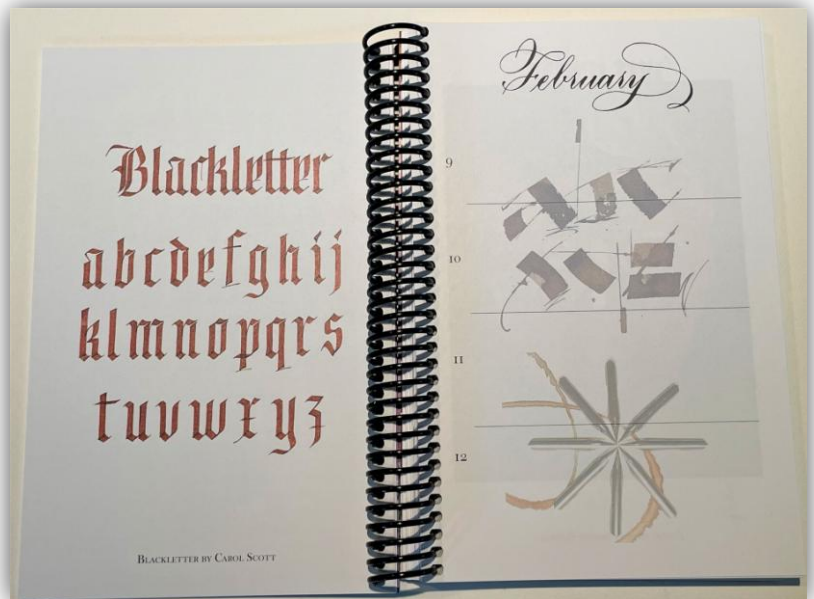 Blackletter
abcdefghij
klmnopqrs
tuvwxyz
BLACKLETTER BY CAROL SCOTT
February
9
10
11
12